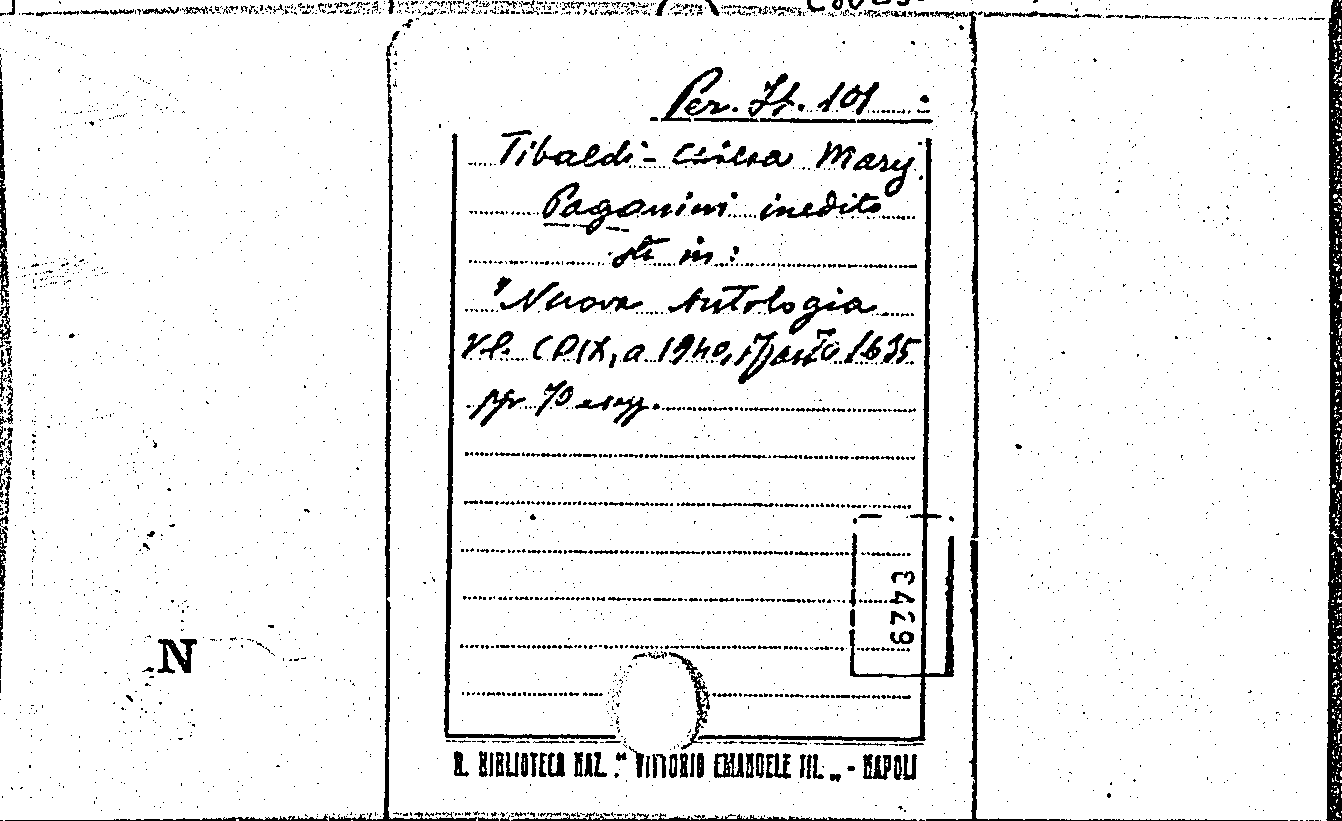 Per. It. 101
Tibaldi-Chiesa Mary
Paganini inedito
sta in:
"Nuova Antologia
Vol. CDIX, a 1940, fasc. 1635
pp 70 e sgg.
3429
N
R. BIBLIOTECA NAZ. " VITTORIO EMANUELE III. „ - NAPOLI